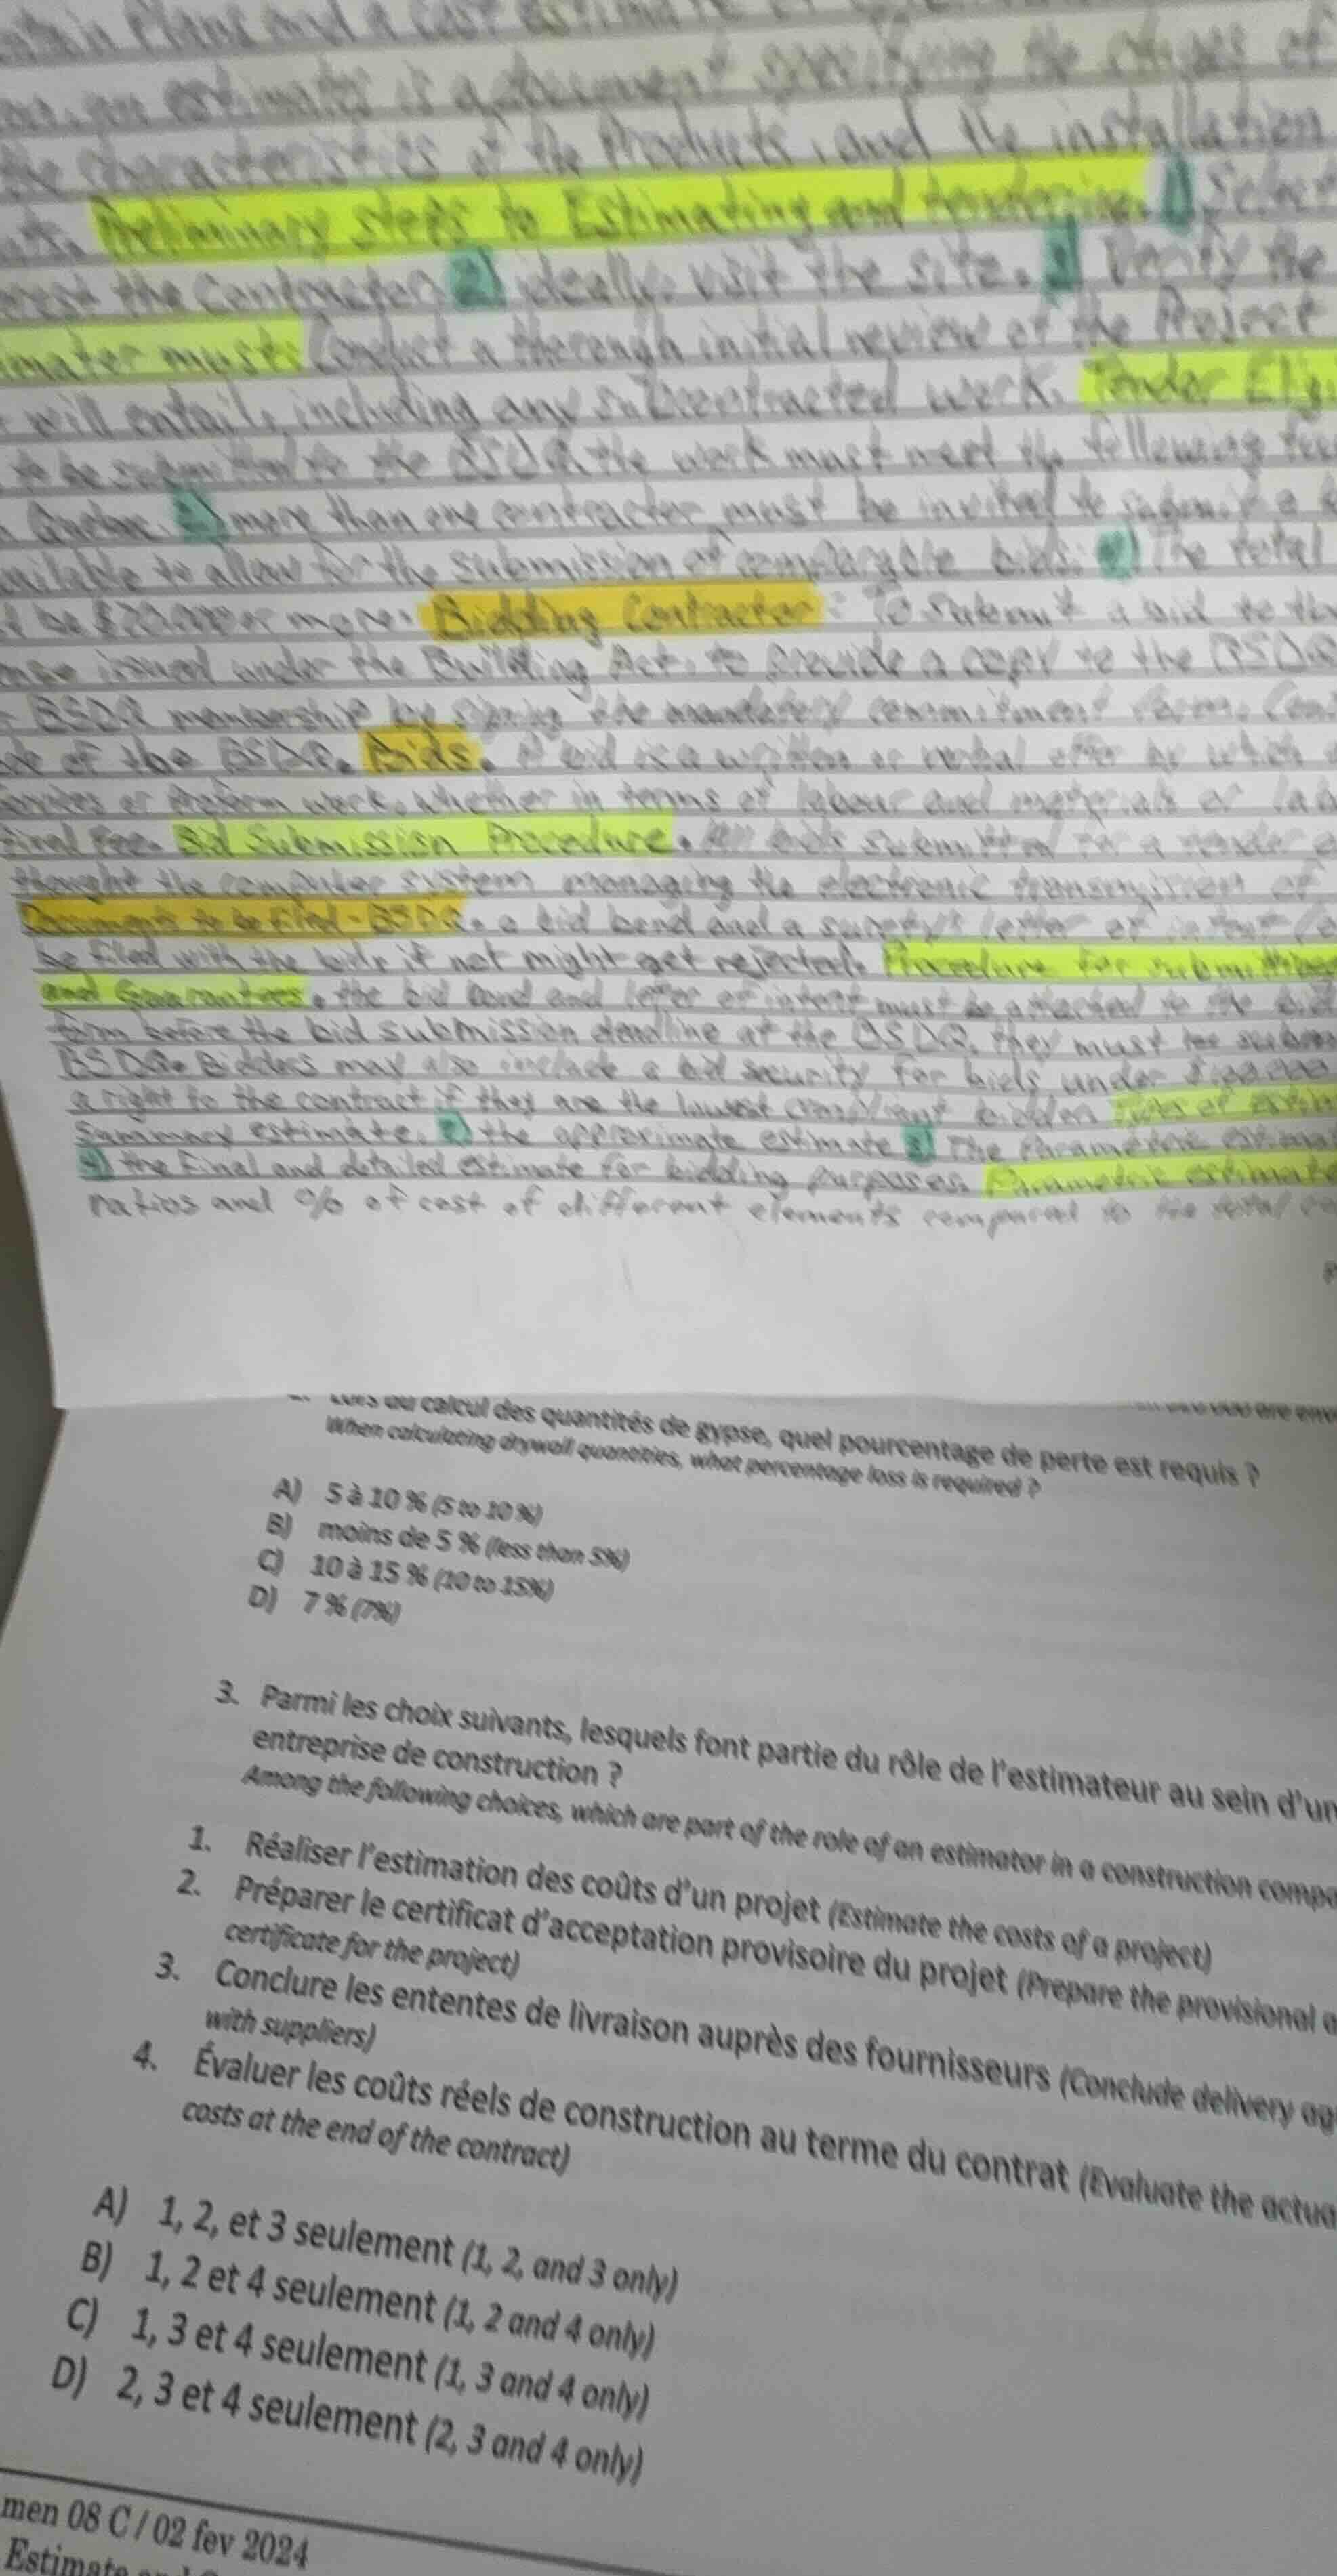 Plans and a cost
estimates is a document specifying the stages of
the characteristics of the Products, and the installation
Preliminary steps to Estimating and tendering. 1) Select
the Contractor. 2) ideally visit the site. 3) Verify the
must: Conduct a thorough initial review of the Project
will entail, including any subcontracted work. Tender
to be submitted to the BSDQ the work must meet the following
2) more than one contractor must be invited to submit a
to allow for the submission of comparable bids. 4) The total
be $20,000 or more. Bidding Contractor: To submit a bid to the
issued under the Building Act, to provide a copy to the BSDQ
BSDQ membership by signing the mandatory commitment form.
of the BSDQ. Bids. A bid is a written or verbal offer by which
or Perform work, whether in terms of labour and materials or
Bid Submission Procedure. All bids submitted for a tender
thought the computer system managing the electronic transmission of
Documents to be Filed - BSDQ. a bid bond and a surety's letter of intent
be filed with the bids if not might get rejected. Procedure for submitting
and Guarantees. the bid bond and letter of intent must be attached to the bid
form before the bid submission deadline at the BSDQ. they must be
BSDQ. Bidders may also include a bid security for bids under $100,000
a right to the contract if they are the lowest compliant bidder. Types of
Summary estimate. 2) the approximate estimate 3) The Parametric
4) the Final and detailed estimate for bidding purposes. Parametric estimate
ratios and % of cost of different elements compared to the total
Lors du calcul des quantités de gypse, quel pourcentage de perte est requis ?
When calculating drywall quantities, what percentage loss is required ?
A) 5 à 10 % (5 to 10 %)
B) moins de 5 % (less than 5%)
C) 10 à 15 % (10 to 15%)
D) 7 % (7%)
3. Parmi les choix suivants, lesquels font partie du rôle de l'estimateur au sein d'un
entreprise de construction ?
Among the following choices, which are part of the role of an estimator in a construction
1. Réaliser l'estimation des coûts d'un projet (Estimate the costs of a project)
2. Préparer le certificat d'acceptation provisoire du projet (Prepare the provisional
certificate for the project)
3. Conclure les ententes de livraison auprès des fournisseurs (Conclude delivery
with suppliers)
4. Évaluer les coûts réels de construction au terme du contrat (Evaluate the
costs at the end of the contract)
A) 1, 2, et 3 seulement (1, 2, and 3 only)
B) 1, 2 et 4 seulement (1, 2 and 4 only)
C) 1, 3 et 4 seulement (1, 3 and 4 only)
D) 2, 3 et 4 seulement (2, 3 and 4 only)
men 08 C / 02 fev 2024
Estimate